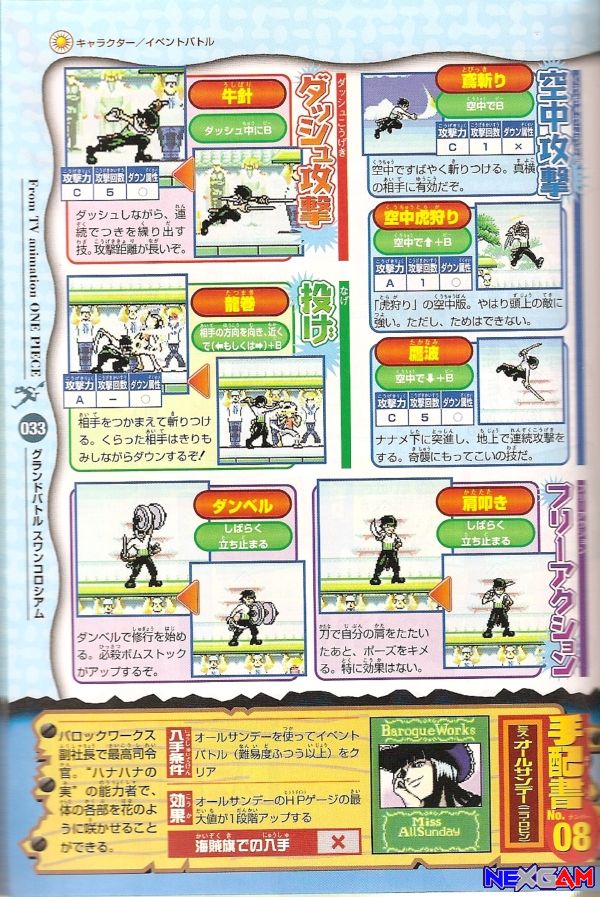 キャラクター／イベントバトル
From TV animation ONE PIECE
033
グランドバトル スワンコロシアム
空中攻撃
とびっき
鳶斬り
空中でB
攻撃力 攻撃回数 ダウン属性
C 1 ×
空中ですばやく斬りつける。真横
の相手に有効だぞ。
空中虎狩り
空中で⬆+B
攻撃力 攻撃回数 ダウン属性
A 1 ○
「虎狩り」の空中版。やはり頭上の敵に
強い。ただし、ためはできない。
たかなみ
鷹波
空中で⬇+B
攻撃力 攻撃回数 ダウン属性
C 5 ○
ナナメ下に突進し、地上で連続攻撃を
する。奇襲にもってこいの技だ。
ダッシュこうげき
ダッシュ攻撃
うしばり
牛針
ダッシュ中にB
攻撃力 攻撃回数 ダウン属性
C 5 ○
ダッシュしながら、連
続でつきを繰り出す
技。攻撃距離が長いぞ。
なげ
投げ
たつまき
龍巻
相手の方向を向き、近く
で(⬅もしくは➡)+B
攻撃力 攻撃回数 ダウン属性
A － ○
相手をつかまえて斬りつけ
る。くらった相手はきりも
みしながらダウンするぞ!
フリーアクション
かたたた
肩叩き
しばらく
立ち止まる
刀で自分の肩をたたい
たあと、ポーズをキメ
る。特に効果はない。
ダンベル
しばらく
立ち止まる
ダンベルで修行を始め
る。必殺ボムストック
がアップするぞ。
手配書
No.
ナンバー
08
ミス・オールサンデー(ニコ・ロビン)
Baroque Works
Miss
AllSunday
入手条件
オールサンデーを使ってイベント
バトル（難易度ふつう以上）をク
リア
効果
オールサンデーのHPゲージの最
大値が1段階アップする
海賊旗での入手
×
バロックワークス
副社長で最高司令
官。“ハナハナの
実”の能力者で、
体の各部を花のよ
うに咲かせること
ができる。
NEXGAM